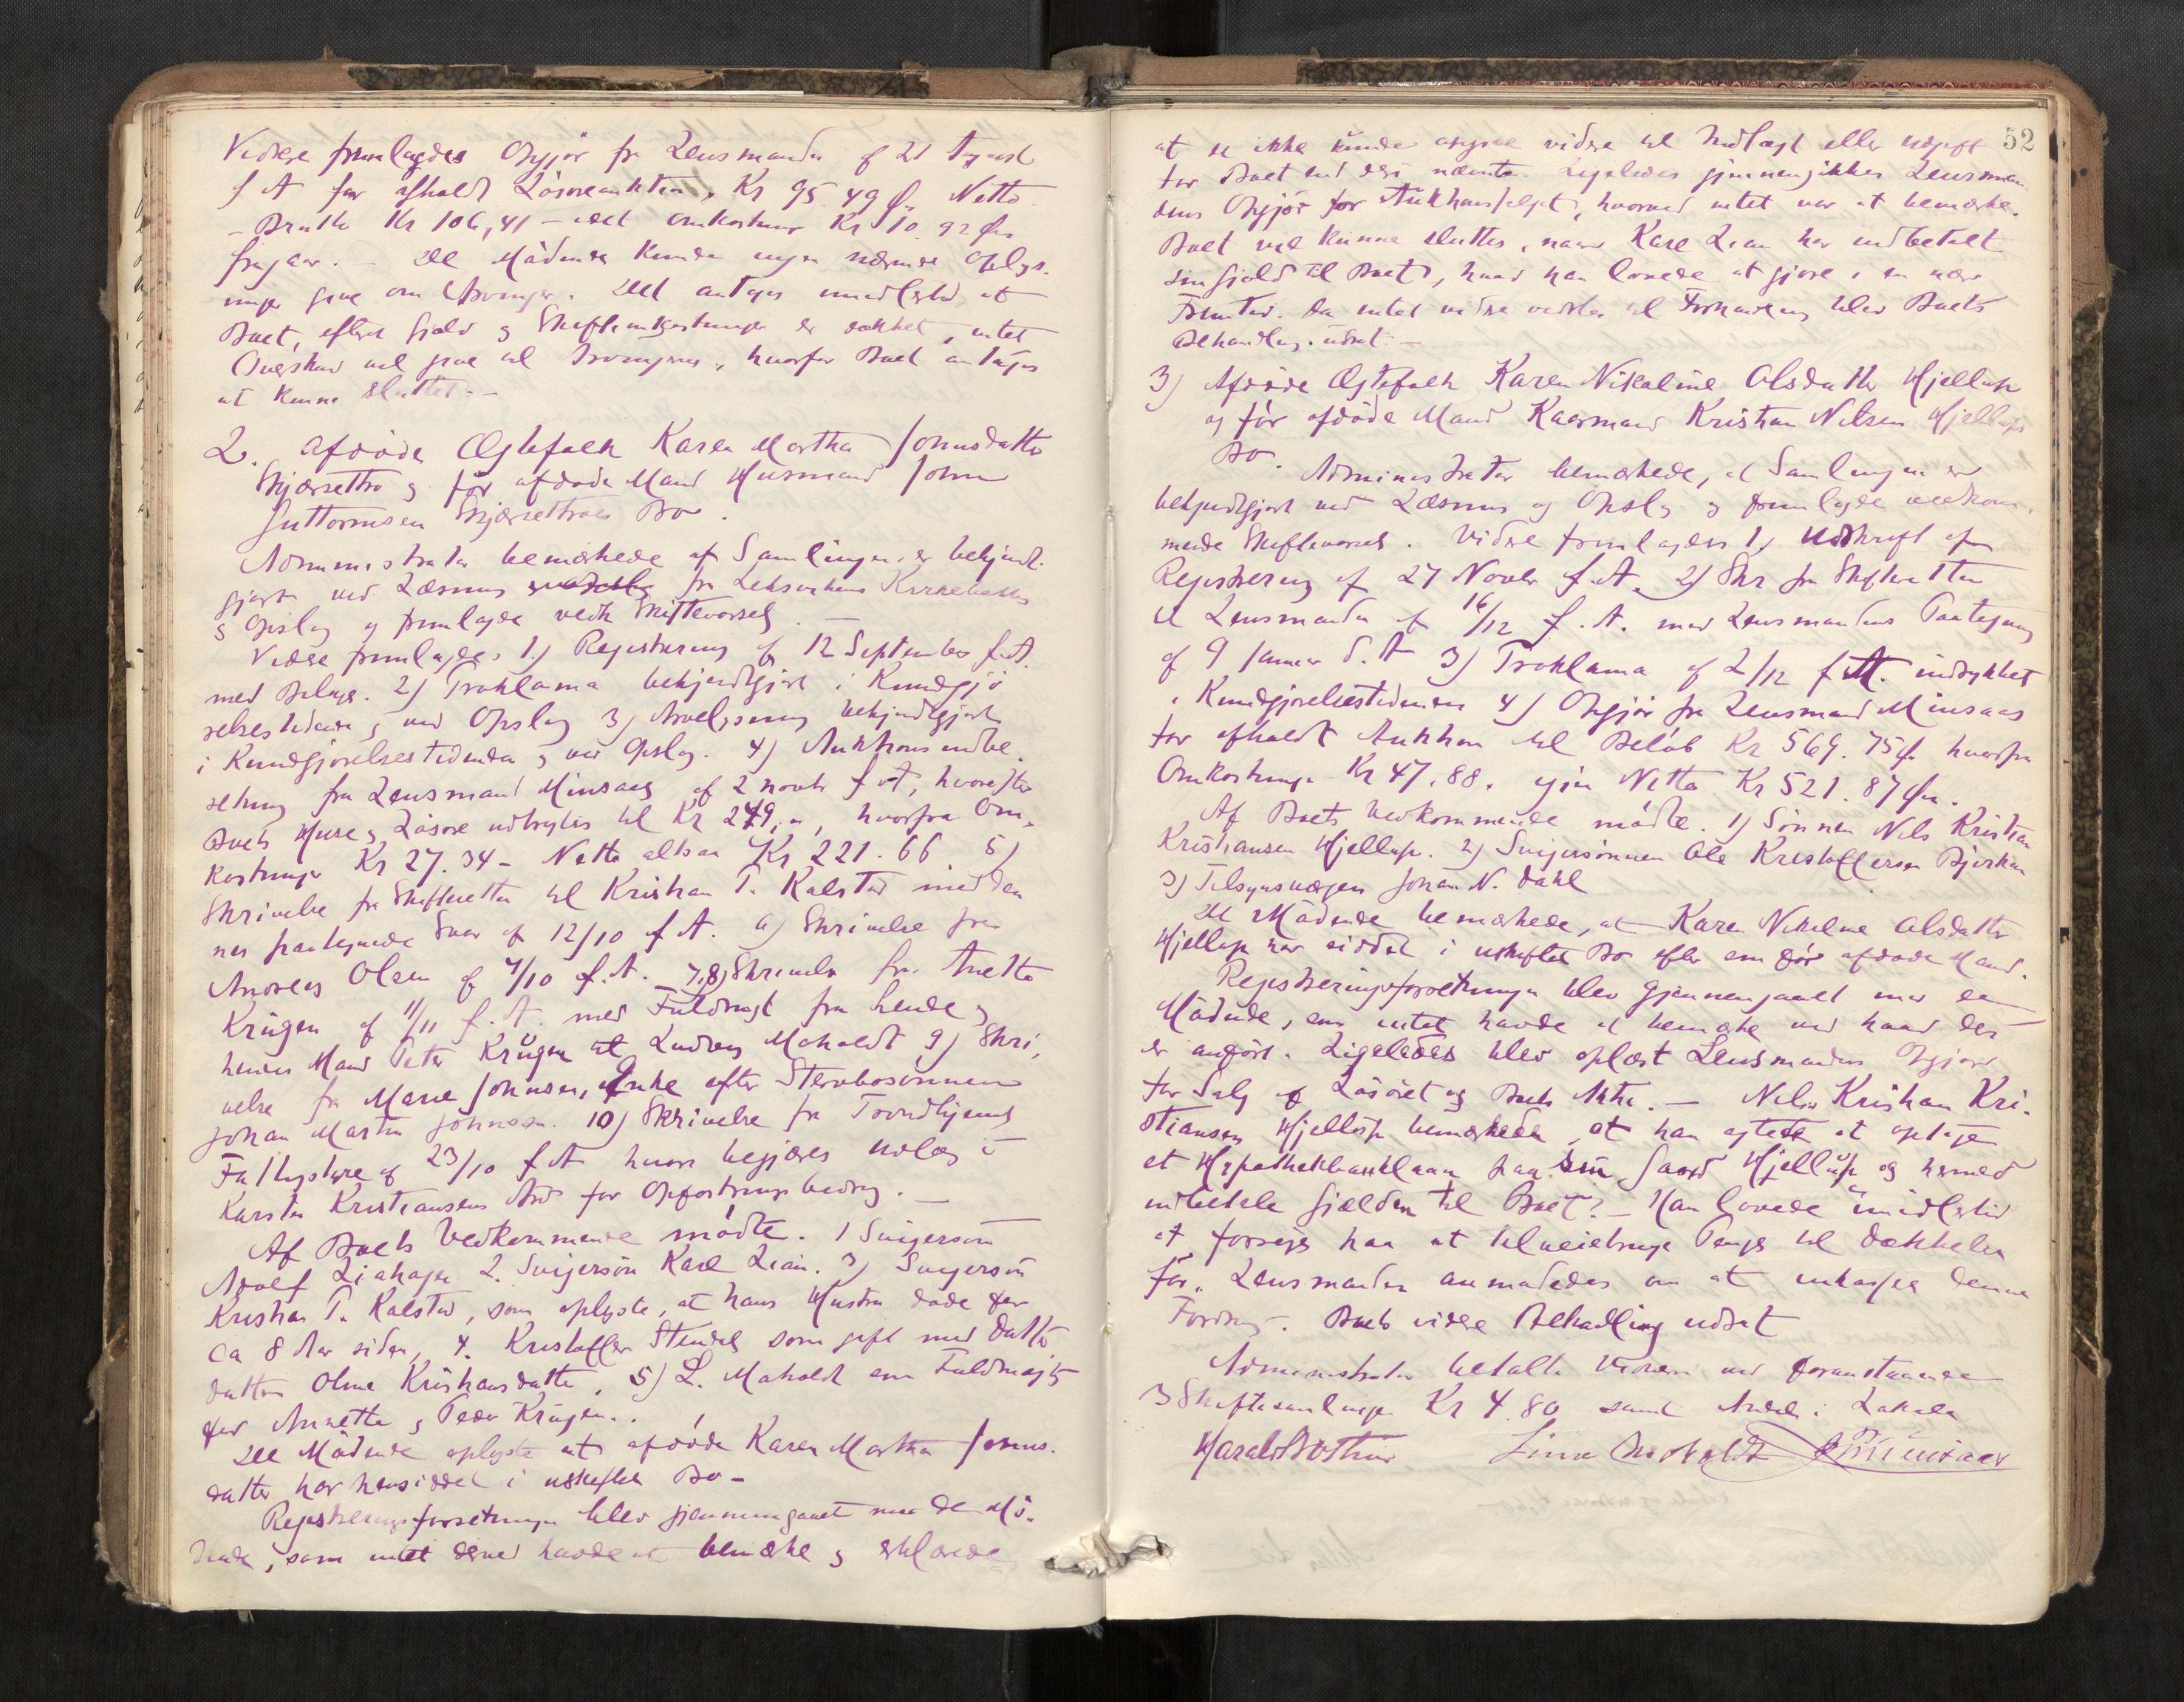 Videre fremlagdes Opgjör fra Lensmanden af 21 August
f A for afholdt Lösöreauktion, Kr 95.49 Ør Netto
- Brutto Kr 106,41 - idet Omkostninger Kr 10.92 Øre
fragaar. - De Mödende kunde ingen nærmere Oplys-
ninger give om Arvinger. Det antages imidlertid at
Boet, efter Gjæld og Skifteomkostninger er dækket, intet
Overskud vil give til Arvingerne, hvorfor Boet antages
at kunne sluttes. -
2. Afdöde Ægtefolk Karen Martha Jonusdatter
Skjærsethro og för afdöde Mand Husmand John
Guttormsen Skjærsethroes Bo.
Administrator bemærkede at Samlingen er bekjendt-
gjort ved Læsning fra Leksvikens Kirkebakke
og Opslag og fremlagde vedk Skiftevarsel. -
Videre fremlagdes 1) Registrering af 12 September f.A.
med Bilage. 2) Proklama bekjendtgjort i Kundgjö-
relsestidende og ved Opslag 3) Arvelysning bekjendtgjort
i Kundgjörelsestidenden og ved Opslag. 4) Auktionsindbe-
retning fra Lensmand Minsaas af 2 Novbr f A, hvorefter
Boets Huse og Lösöre udbragtes til Kr 249,00, hvorfra Om-
kostninger Kr 27.34 - Netto altsaa Kr 221.66 5)
Skrivelse fra Skifteretten til Kristian T. Kalstad med den-
nes paategnede Svar af 12/10 f A. 6) Skrivelse fra
Andreas Olsen af 4/10 f.A. 7,8) Skrivelse fra Anetta
Krügen af 11/11 f.A. med Fuldmagt fra hende og
hendes Mand Peter Krügen til Ludvig Moholdt 9) Skri-
velse fra Marie Johnsen, Enke efter Stervbosönnen
Johan Martin Johnsen. 10) Skrivelse fra Trondhjems
Fattigstyre af 23/10 f A hvori begjæres Udlæg i
Karsten Kristiansens Arv for Opfostringsbidrag. -
Af Boets Vedkommende mödte. 1 Svigersön
Adolf Liahagen 2. Svigersön Karl Lian. 3) Svigersön
Kristian T. Kalstad, som oplyste, at hans Hustru döde for
ca 8 Aar siden, 4. Kristoffer Stendal som gift med Datter-
datteren Oline Kristiansdatter, 5) L. Moholdt som Fuldmægtig
for Annetta og Peder Krügen.
De Mödende oplyste at afdöde Karen Martha Jonus-
datter har hensiddet i uskiftet Bo -
Registreringsforretningen blev gjennemgaaet med de Mö-
dende, som intet derved havde at bemærke og erklærede
52
at de ikke kunde angive videre til Indtægt eller Udgift
for Boet end der nævnte. Ligeledes gjennemgikkes Lensman-
dens Opgjör for Auktionssalget, hvorved intet var at bemærke.
Boet vil kunne sluttes, naar Karl Lian har indbetalt
sin Gjæld til Boet, hvad han lovede at gjöre i en nær
Fremtid. Da intet videre vedtes til Forhandling blev Boets
Behandling udsat. -
3) Afdöde Ægtefolk Karen Nikoline Olsdatter Hjellup
og för afdöde Mand Kaarmand Kristian Nilsen Hjellups
Bo.
Administrator bemærkede, at Samlingen er
bekjendtgjort ved Læsning og Opslag og fremlagde vedkom-
mende Skiftevarsel. Videre fremlagdes 1) Udskrift af
Registrering af 27 Novbr f.A. 2) Skr fra Skifteretten
til Lensmanden af 16/12 f.A. med Lensmandens Paategning
af 9 Januar d.A 3) Proklama af 2/12 f A. indrykket
i Kundgjörelsestidenden 4) Opgjör fra Lensmand Minsaas
for afholdt Auktion til Belöb Kr 569.75 Ø. hvorfra
Omkostninger Kr 47.88. igjen Netto Kr 521.87 Øre.
Af Boets Vedkommende mödte. 1) Sönnen Nils Kristian
Kristiansen Hjellup. 2) Svigersönnen Ole Kristoffersen Bjerkan
3) Tilsynsværgen Johan N. Dahl
De Mödende bemærkede, at Karen Nikoline Olsdatter
Hjellup har siddet i uskiftet Bo efter sin för afdöde Mand.
Registreringsforretningen blev gjennemgaaet med de
Mödende, som intet havde at bemærke ved hvad der
er anfört. Ligeledes blev oplæst Lensmandens Opgjör
for Salg af Lösöret og Boets Aktie. - Nils Kristian Kri-
stiansen Hjellup bemærkede at han agtede at optage
et Hypothekbanklaan paa sin Gaard Hjellup og hermed
indbetale Gjælden til Boet. - Han lovede imidlertid
at forsöge paa at tilveiebringe Penge til Dækkelse
för. Lensmanden anmodedes om at inkassere denne
Fordring. Boets videre Behandling udsat
Administrator betalte Vidnerne ved foranstaaende
3 Skiftesamlinger Kr 4.80 samt Andel i Lokale
Harald Bothner Linus Moholdt Minsaas